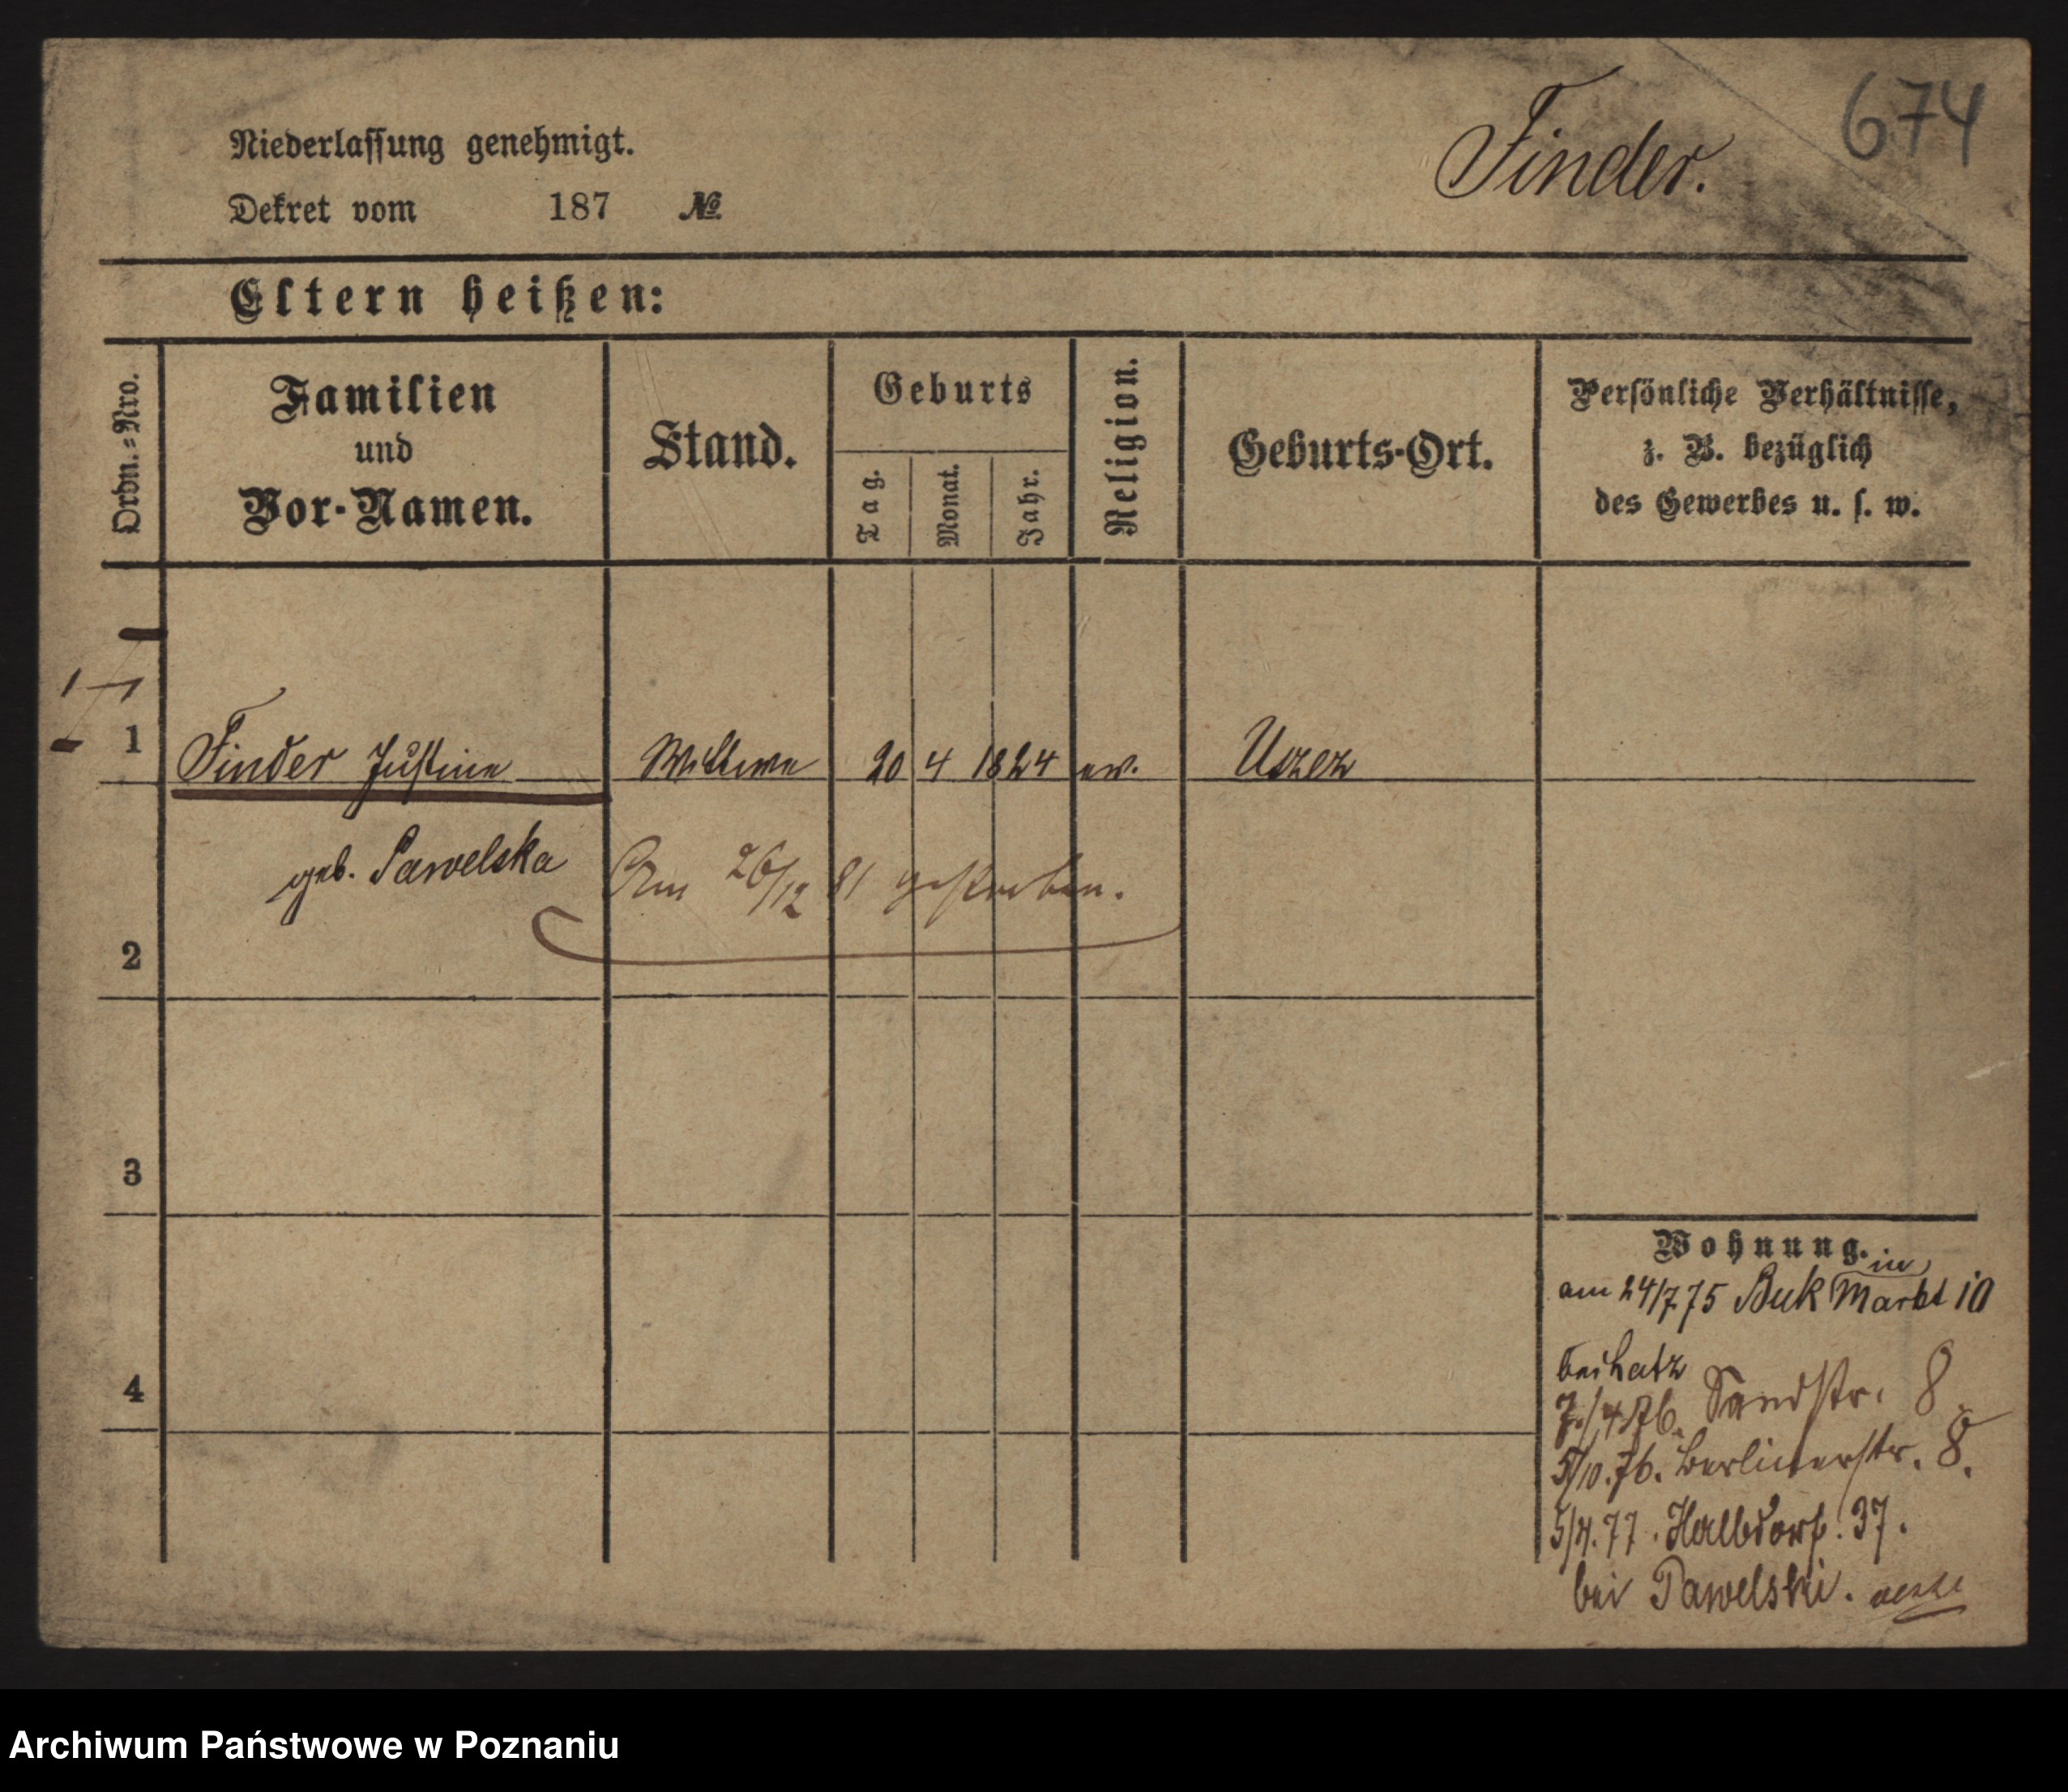 674
Finder.
Niederlassung genehmigt.
Dekret vom 187 №
Eltern heißen:
Ordn.-Nro.
Familien und Vor-Namen.
Stand.
Geburts
Tag.
Monat.
Jahr.
Religion.
Geburts-Ort.
Persönliche Verhältnisse,
z. B. bezüglich
des Gewerbes u. s. w.
1 Finder Justine Wittwe 20 4 1824 ev.
geb. Pawelska Am 26/12 81 gestorben.
2
3
4
Wohnung.
in
am 24/7 75 Buk Markt 10
bei Latz
7/4 76. Sandstr. 8
5/10. 76. Berlinerstr. 8.
5/4. 77. Halbdorf. 37.
bei Pawelski.
Archiwum Państwowe w Poznaniu